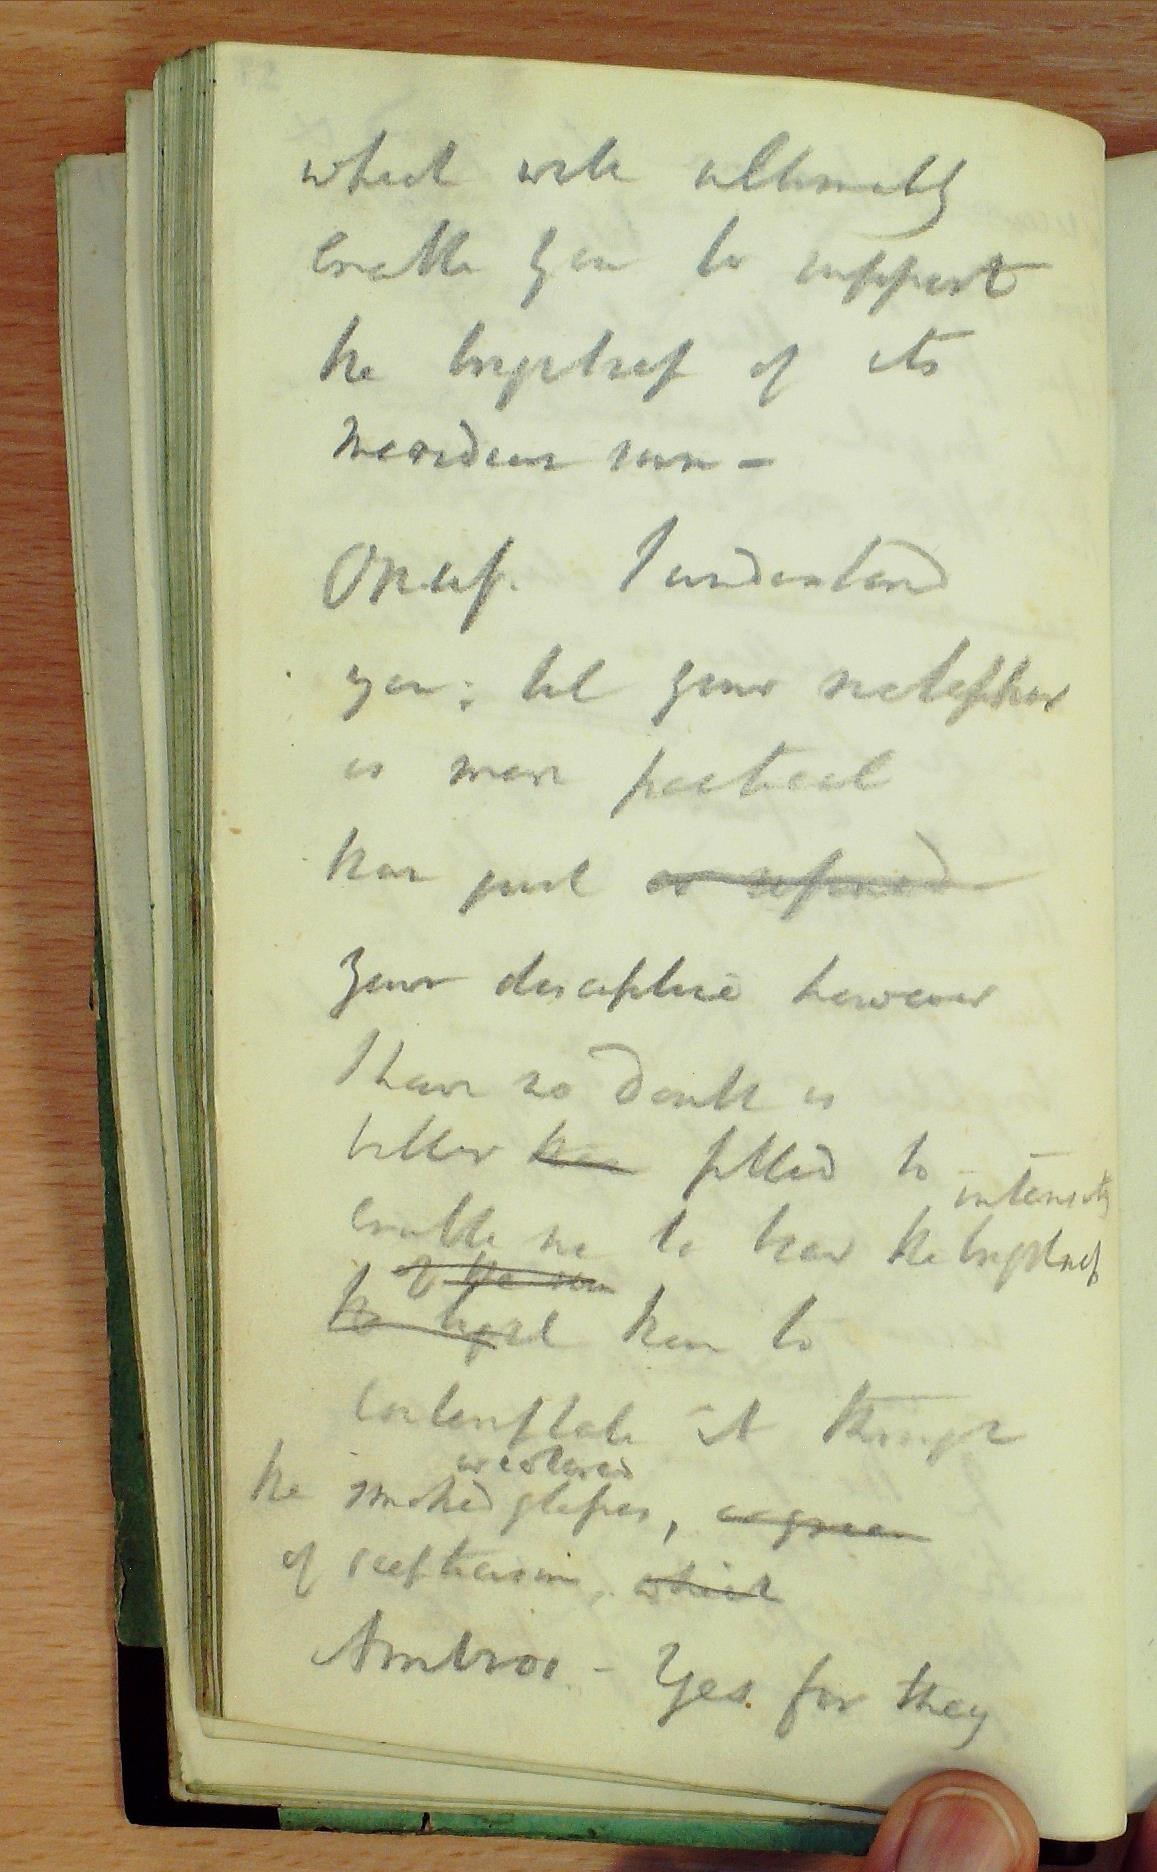 which will ultimately
enable you to support
the brightness of its
meridian sun -
Onuph. I understand
you; but your metaphor
is more poetical
than just or refined
Your discipline however
I have no doubt is
better than fitted to
intensity
enable me to bear the brightness
of the sun
the light than to
contemplate it through
or coloured
the smoked glasses, or green
of scepticism, which
Ambros. - Yes for they